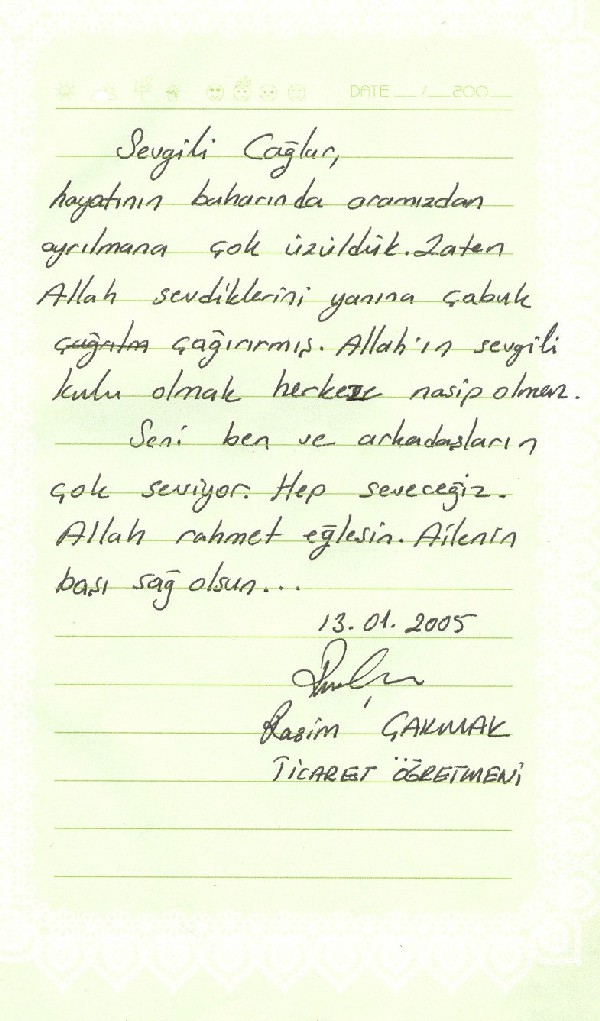 DATE __/__200__
Sevgili Çağlar,
hayatının baharında aramızdan
ayrılmana çok üzüldük. Zaten
Allah sevdiklerini yanına çabuk
çağırılm çağırırmış. Allah'ın sevgili
kulu olmak herkeze nasip olmaz.
Seni ben ve arkadaşların
çok seviyor. Hep seveceğiz.
Allah rahmet eğlesin. Ailenin
başı sağ olsun...
13.01.2005
Rasim ÇAKMAK
TİCARET ÖĞRETMENİ